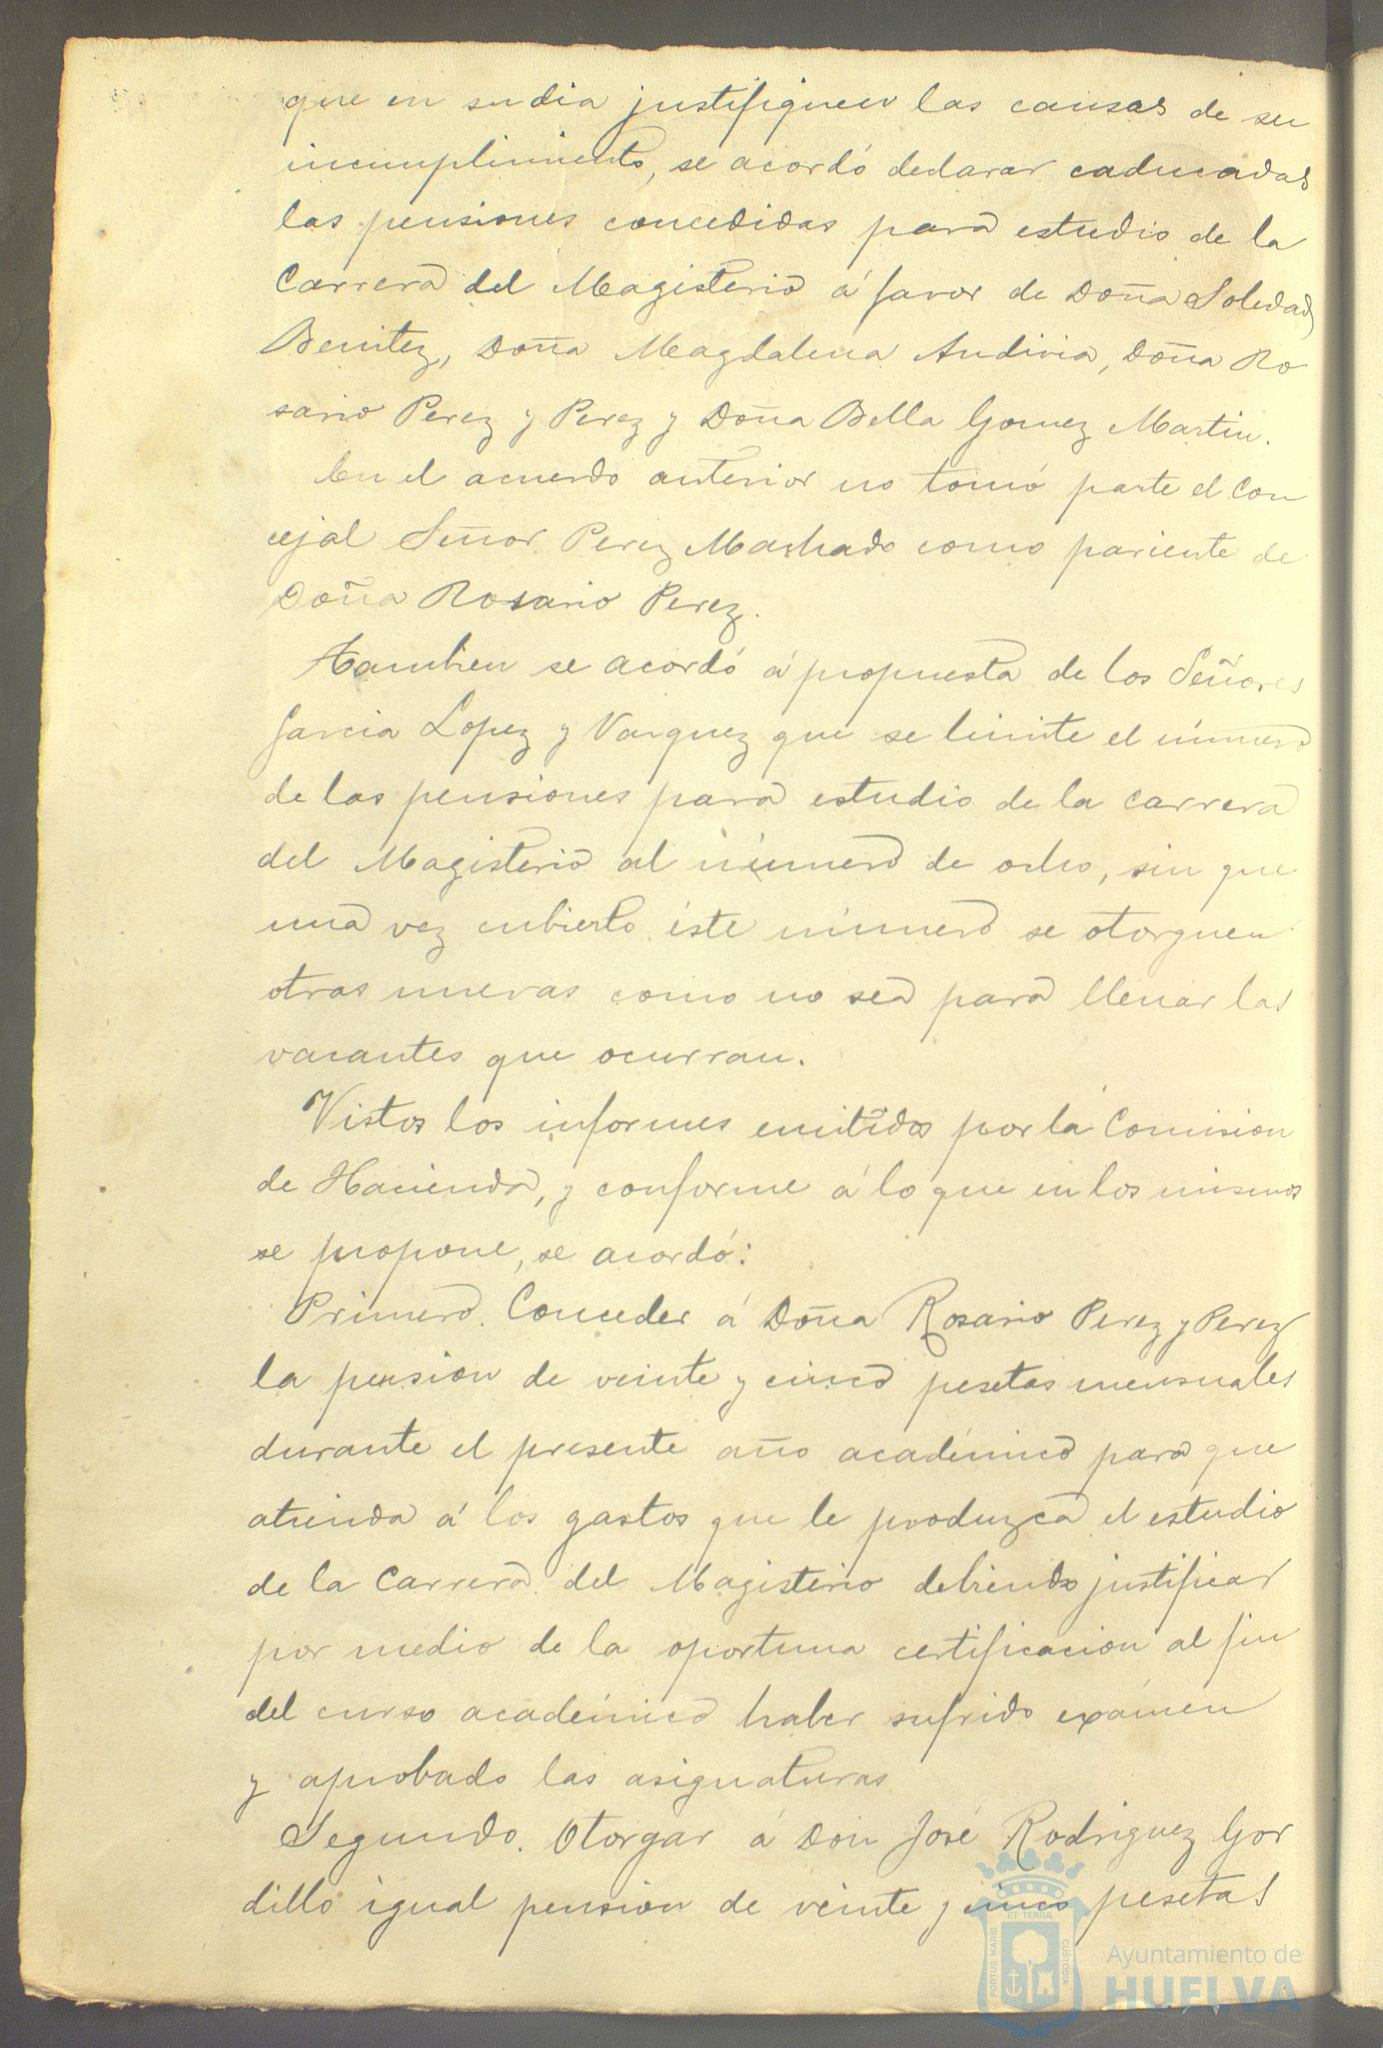 que en su dia justifiquen las causas de su
incumplimiento, se acordó declarar caducadas
las pensiones concedidas para estudio de la
Carrera del Magisterio á favor de Doña Soledad
Benitez, Doña Magdalena Andivia, Doña Ro
sario Perez y Perez y Doña Bella Gomez Martin.
En el acuerdo anterior no tomó parte el Con
cejal Señor Perez Machado como pariente de
Doña Rosario Perez.
Tambien se acordó á propuesta de los Señores
Garcia Lopez y Vazquez que se limite el número
de las pensiones para estudio de la carrera
del Magisterio al número de ocho, sin que
una vez cubierto éste número se otorguen
otras nuevas como no sea para llenar las
vacantes que ocurran.
Vistos los informes emitidos por la Comision
de Hacienda, y conforme á lo que en los mismos
se propone, se acordó:
Primero. Conceder á Doña Rosario Perez y Perez
la pension de veinte y cinco pesetas mensuales
durante el presente año académico para que
atienda á los gastos que le produzca el estudio
de la Carrera del Magisterio debiendo justificar
por medio de la oportuna certificacion al fin
del curso académico haber sufrido exámen
y aprobado las asignaturas
Segundo. Otorgar á Don José Rodriguez Gor
dillo igual pension de veinte y cinco pesetas
PORTUS MARIS ET TERRAE CUSTODIA
Ayuntamiento de
HUELVA